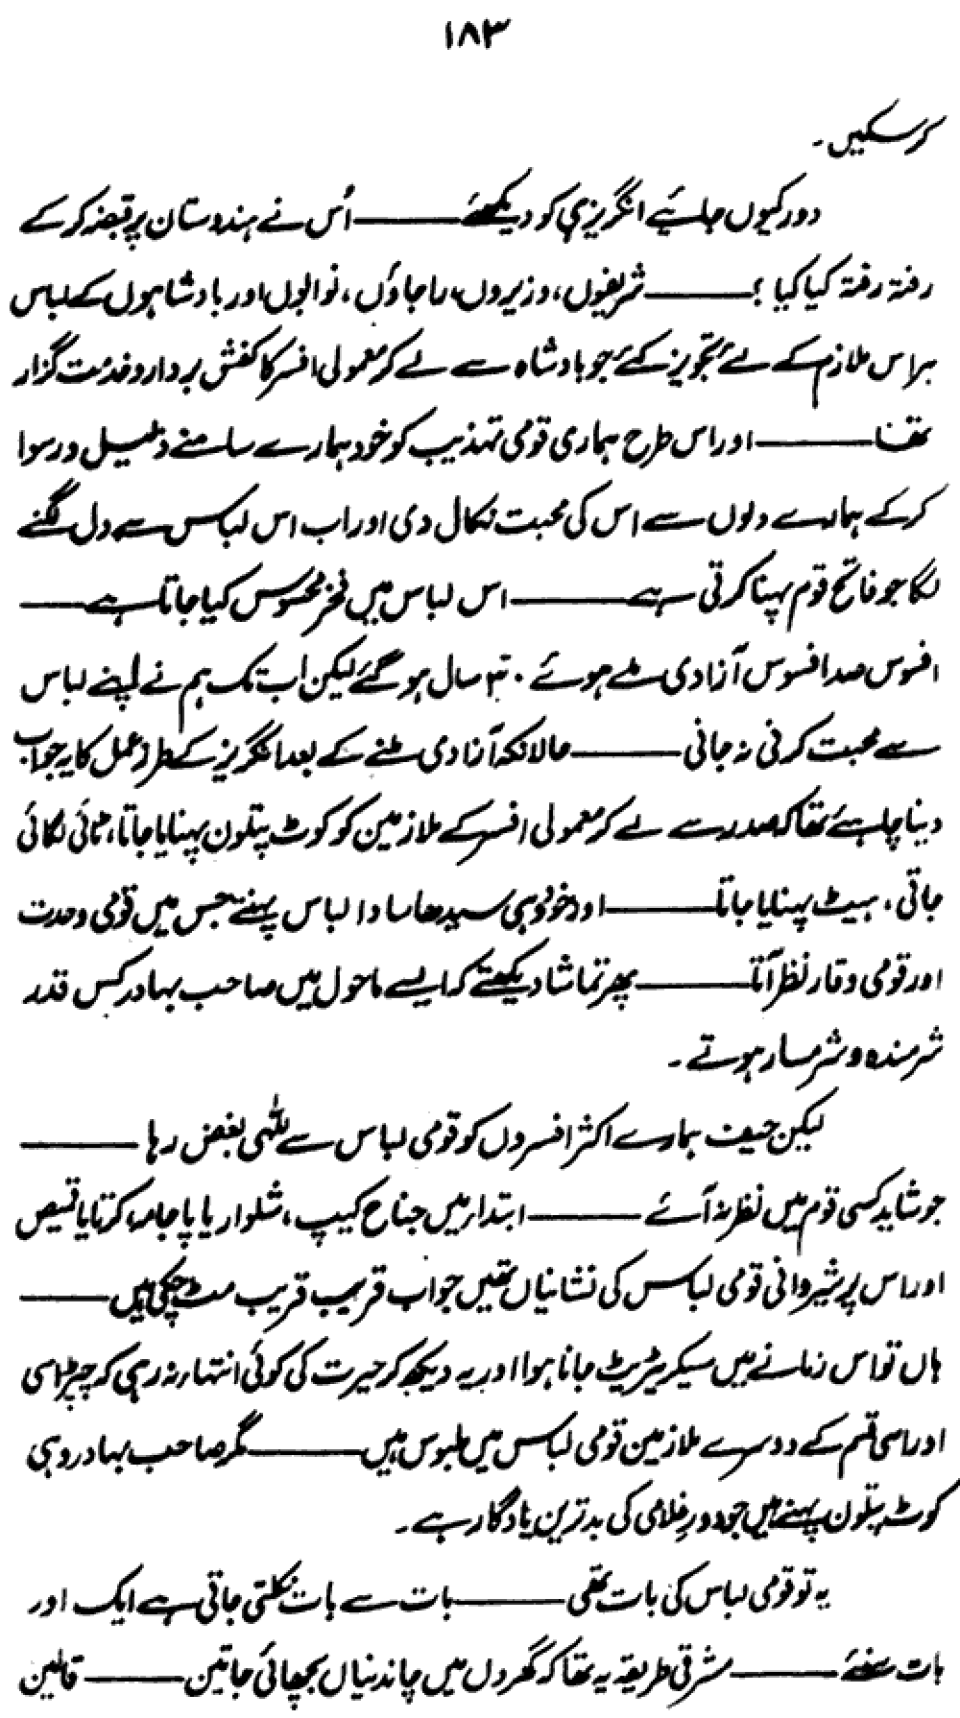 ۱۸۳
کرسکیں۔
دور کیوں جایئے انگریز ہی کو دیکھئے ــــــ اُس نے ہندوستان پر قبضہ کر کے
رفتہ رفتہ کیا کیا ؟ ــــــ شریفوں، وزیروں، راجاؤں، نوابوں اور بادشاہوں کے لباس
ہر اس ملازم کے لئے تجویز کئے جو بادشاہ سے لے کر معمولی افسر کا کفش بردار و خدمت گزار
تھا ــــــ اور اس طرح ہماری قومی تہذیب کو خود ہمارے سامنے ذلیل و رسوا
کر کے ہمارے دلوں سے اس کی محبت نکال دی اور اب اس لباس سے دل لگنے
لگا جو فاتح قوم پہنا کرتی ہے ــــــ اس لباس میں فخر محسوس کیا جاتا ہے ــــــ
افسوس صد افسوس آزادی ملے ہوئے ۳۰ سال ہو گئے لیکن اب تک ہم نے اپنے لباس
سے محبت کرنی نہ جانی ــــــ حالانکہ آزادی ملنے کے بعد انگریز کے طرزِ عمل کا یہ جواب
دینا چاہئے تھا کہ صدر سے لے کر معمولی افسر کے ملازمین کو کوٹ پتلون پہنایا جاتا، ٹائی لگائی
جاتی، ہیٹ پہنایا جاتا ــــــ اور خود وہی سیدھا سادا لباس پہنتے جس میں قومی وحدت
اور قومی وقار نظر آتا ــــــ پھر تماشا دیکھتے کہ ایسے ماحول میں صاحب بہادر کس قدر
شرمندہ و شرمسار ہوتے۔
لیکن حیف ہمارے اکثر افسروں کو قومی لباس سے للّٰہی بغض رہا ــــــ
جو شاید کسی قوم میں نظر نہ آئے ــــــ ابتداء میں جناح کیپ، شلوار یا پاجامہ، کرتا یا قمیص
اور اس پر شیروانی قومی لباس کی نشانیاں تھیں جو اب قریب قریب مٹ چکی ہیں ــــــ
ہاں تو اس زمانے میں سیکریٹریٹ جانا ہوا اور یہ دیکھ کر حیرت کی کوئی انتہاء نہ رہی کہ چپڑاسی
اور اسی قسم کے دوسرے ملازمین قومی لباس میں ملبوس ہیں ــــــ مگر صاحب بہادر وہی
کوٹ پتلون پہنے ہیں جو دورِ غلامی کی بدترین یادگار ہے۔
یہ تو قومی لباس کی بات تھی ــــــ بات سے بات نکلتی جاتی ہے ایک اور
بات سنئے ــــــ مشرقی طریقہ یہ تھا کہ گھروں میں چاندنیاں بچھائی جاتیں ــــــ قالین